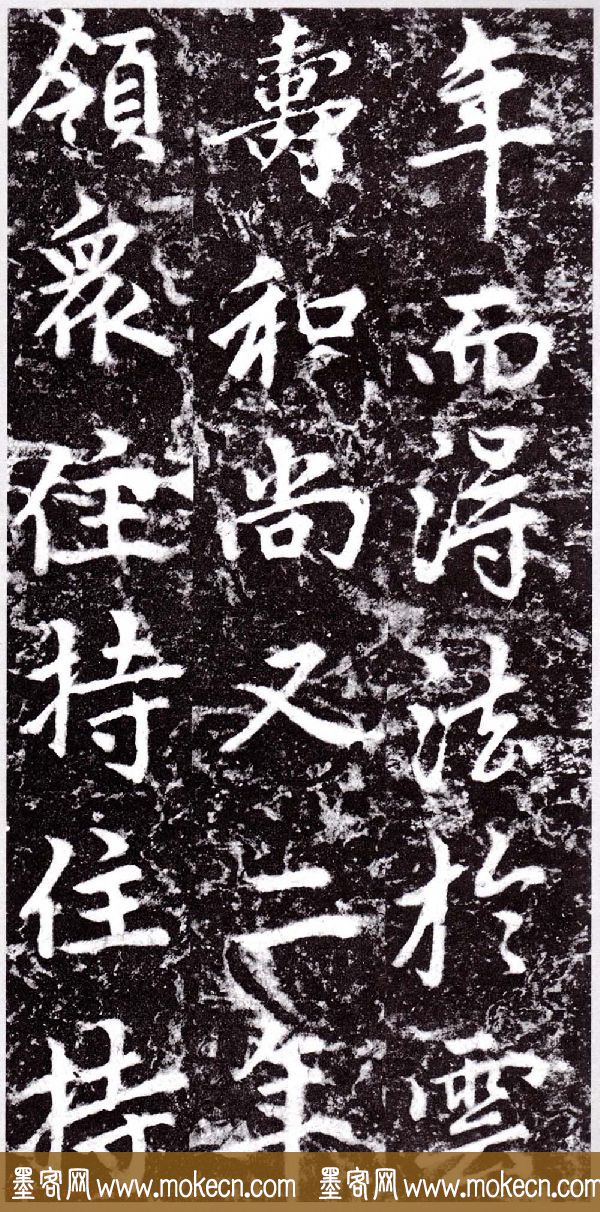 年而得法於雲
壽和尚又二年
領眾住持住持
墨客网 www.mokecn.com 墨客网 www.mokecn.com